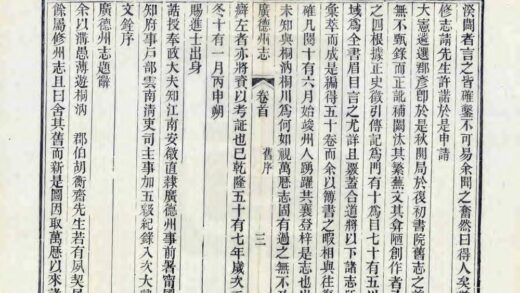 聞者言之皆確鑿不可易余聞之奮然曰得人矣
修志請先生許諾於是申請
大憲遴選郡彥即於是秋開局於復初書院舊志之
無不甄錄而正訛補闕汰其繁蕪文其倉陋創作者
之則根據正史徵引傳記為門有十為目七十有五以
域為全書眉目言之尤詳且嚴蓋合道將以下諸志
彙萃而成是編得五十卷而余以簿書之暇相與往
確凡閱十有六月始竣州人踴躍其襄登梓是志也
未知與桐汭桐川為何如視萬歷志固有過之無不
辯左者亦將資以考証也已乾隆五十有七年歲次
廣德州志 卷首 舊序 三
冬十有一月丙申朔
賜進士出身
誥授奉政大夫知江南安徽直隸廣德州事前署甯國
知府事戶部雲南清吏司主事加五級紀錄八次大
文銓序
廣德州志題辭
余以溝愚薄遊桐汭 郡伯胡衡齋先生若有夙契
余屬修州志且曰舍其舊而新是圖因取萬歷以來